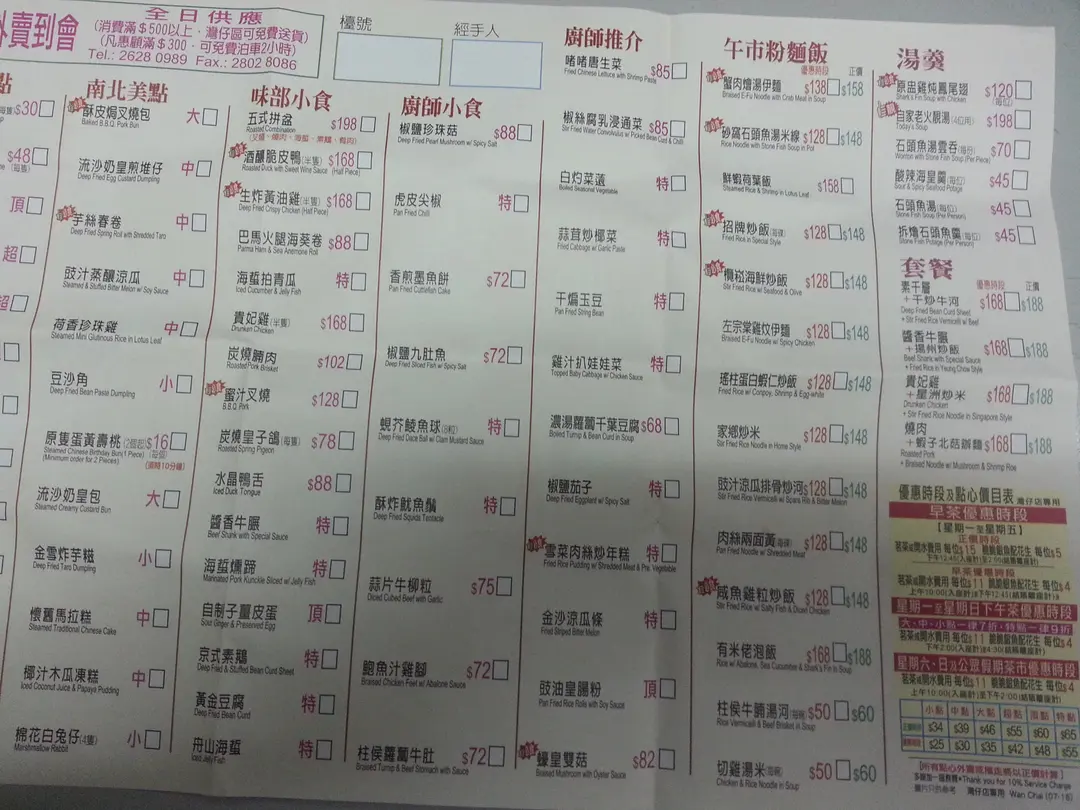 外賣到會
全日供應
(消費滿$500以上，灣仔區可免費送貨)
(凡惠顧滿$300，可免費泊車2小時)
Tel.: 2628 0989 Fax.: 2802 8086
檯號
經手人
點
$30
$48
頂
超
南北美點
酥皮焗叉燒包 大
Baked B.B.Q. Pork Bun
流沙奶皇煎堆仔 中
Deep Fried Egg Custard Dumpling
芋絲春卷 中
Deep Fried Spring Roll with Shredded Taro
豉汁蒸釀涼瓜 中
Steamed & Stuffed Bitter Melon w/ Soy Sauce
荷香珍珠雞 中
Steamed Mini Glutinous Rice in Lotus Leaf
豆沙角 小
Deep Fried Bean Paste Dumpling
原隻蛋黃壽桃 (2個起) $16
Steamed Chinese Birthday Bun(1 Piece) (每個)
(Minimum order for 2 Pieces) (需時10分鐘)
流沙奶皇包 大
Steamed Creamy Custard Bun
金雪炸芋糍 小
Deep Fried Taro Dumpling
懷舊馬拉糕 中
Steamed Traditional Chinese Cake
椰汁木瓜凍糕 中
Iced Coconut Juice & Papaya Pudding
棉花白兔仔(4隻) 小
Marshmallow Rabbit
味部小食
五式拼盆 $198
Roasted Combination
酒釀脆皮鴨(半隻) $168
Roasted Duck with Sweet Wine Sauce (Half Piece)
生炸黃油雞(半隻) $168
Deep Fried Crispy Chicken (Half Piece)
巴馬火腿海葵卷 $88
Parma Ham & Sea Anemone Roll
海蜇拍青瓜 特
Iced Cucumber & Jelly Fish
貴妃雞(半隻) $168
Drunken Chicken
炭燒腩肉 $102
Roasted Pork Brisket
蜜汁叉燒 $128
B.B.Q. Pork
炭燒皇子鴿(每隻) $78
Roasted Spring Pigeon
水晶鴨舌 $88
Iced Duck Tongue
醬香牛𦟌 特
Beef Shank with Special Sauce
海蜇燻蹄 特
Marinated Pork Kunckle Sliced w/ Jelly Fish
自制子薑皮蛋 頂
Sour Ginger & Preserved Egg
京式素鵝 特
Deep Fried & Stuffed Bean Curd Sheet
黃金豆腐 特
Deep Fried Bean Curd
舟山海蜇 特
Iced Jelly Fish
廚師小食
椒鹽珍珠菇 $88
Deep Fried Pearl Mushroom w/ Spicy Salt
虎皮尖椒 特
Pan Fried Chilli
香煎墨魚餅 $72
Pan Fried Cuttlefish Cake
椒鹽九肚魚 $72
Deep Fried Sliced Fish w/ Spicy Salt
蜆芥鯪魚球(8粒) 特
Deep Fried Dace Ball w/ Clam Mustard Sauce
酥炸魷魚鬚 特
Deep Fried Squids Tentacle
蒜片牛柳粒 $75
Diced Cubed Beef with Garlic
鮑魚汁雞腳 $72
Braised Chicken Feet w/ Abalone Sauce
柱侯蘿蔔牛肚 $72
Braised Turnip & Beef Stomach with Sauce
廚師推介
啫啫唐生菜 $85
Fried Chinese Lettuce with Shrimp Paste
椒絲腐乳浸通菜 $85
Stir Fried Water Convolvulus w/ Picked Bean Curd & Chilli
白灼菜薳 特
Boiled Seasonal Vegetable
蒜茸炒椰菜 特
Fried Cabbage w/ Garlic Paste
干煸玉豆 特
Pan Fried String Bean
雞汁扒娃娃菜 特
Topped Baby Cabbage w/ Chicken Sauce
濃湯蘿蔔千葉豆腐 $68
Boiled Turnip & Bean Curd in Soup
椒鹽茄子 特
Deep Fried Eggplant w/ Spicy Salt
雪菜肉絲炒年糕 特
Fried Rice Pudding w/ Shredded Meat & Pre. Vegetable
金沙涼瓜條 特
Fried Striped Bitter Melon
豉油皇腸粉 頂
Pan Fried Rice Rolls with Soy Sauce
蠔皇雙菇 $82
Braised Mushroom with Oyster Sauce
午市粉麵飯
優惠時段 正價
蟹肉燴湯伊麵 $138 $158
Braised E-Fu Noodle with Crab Meat in Soup
砂窩石頭魚湯米線 $128 $148
Rice Noodle with Stone Fish Soup in Pot
鮮蝦荷葉飯 $158
Steamed Rice & Shrimp in Lotus Leaf
招牌炒飯(每碟) $128 $148
Fried Rice in Special Style
欖菘海鮮炒飯 $128 $148
Stir Fried Rice w/ Seafood & Olive
左宗棠雞炆伊麵 $128 $148
Braised E-Fu Noodle w/ Spicy Chicken
瑤柱蛋白蝦仁炒飯 $128 $148
Fried Rice w/ Conpoy, Shrimp & Egg-white
家鄉炒米 $128 $148
Stir Fried Rice Noodle in Home Style
豉汁涼瓜排骨炒河 $128 $148
Stir Fried Rice Vermicelli w/ Spare Rib & Bitter Melon
肉絲兩面黃(每碟) $128 $148
Pan Fried Noodle w/ Shredded Meat
鹹魚雞粒炒飯 $128 $148
Stir Fried Rice w/ Salty Fish & Diced Chicken
有米佬泡飯 $168 $188
Rice w/ Abalone, Sea Cucumber & Shark's Fin in Soup
柱侯牛腩湯河(每碗) $50 $60
Rice Vermicelli & Beef Brisket in Soup
切雞湯米(每碗) $50 $60
Chicken & Rice Noodle in Soup
湯羹
原盅雞炖鳳尾翅 $120
Shark's Fin Soup with Chicken (每位)
自家老火靚湯(4位用) $198
Today's Soup
石頭魚湯雲吞(每位) $70
Wonton with Stone Fish Soup (Per Piece)
酸辣海皇羹(每位) $45
Sour & Spicy Seafood Potage
石頭魚湯(每位) $45
Stone Fish Soup (Per Person)
拆燴石頭魚羹(每位) $45
Stone Fish Potage (Per Person)
套餐
優惠時段 正價
素千層
+干炒牛河 $168 $188
Deep Fried Bean Curd Sheet
+ Stir Fried Rice Vermicelli w/ Beef
醬香牛𦟌
+揚州炒飯 $168 $188
Beef Shank with Special Sauce
+ Fried Rice in Yeung Chow Style
貴妃雞
+星洲炒米 $168 $188
Drunken Chicken
+ Stir Fried Rice Noodle in Singapore Style
燒肉
+蝦子北菇辦麵 $168 $188
Roasted Pork
+ Braised Noodle w/ Mushroom & Shrimp Roe
優惠時段及點心價目表 灣仔店專用
早茶優惠時段
【星期一至星期五】
正價時段
茗茶或開水費用 每位$15 脆脆銀魚配花生 每位$5
早茶優惠時段
茗茶或開水費用 每位$11 脆脆銀魚配花生 每位$4
星期一至星期日下午茶優惠時段
大、中、小點一律7折，特點一律9折
茗茶或開水費用 每位$11 脆脆銀魚配花生 每位$4
星期六、日及公眾假期茶市優惠時段
茗茶或開水費用 每位$11 脆脆銀魚配花生 每位$4
小點 中點 大點 特點 頂點 超點
正價時段 $34 $39 $46 $55 $60 $65
優惠時段 $25 $30 $35 $42 $48 $55
[所有點心外賣或推走將以正價計算]
多謝加一服務費 Thank you for 10% Service Charge
圖片只供參考 灣仔店專用 Wan Chai (07-16)